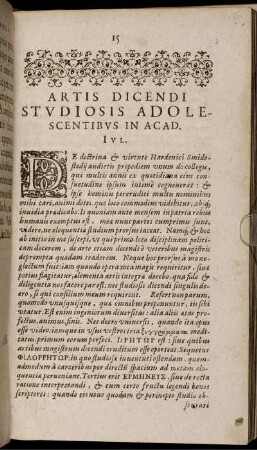 15
ARTIS DICENDI
STVDIOSIS ADOLE-
SCENTIBVS IN ACAD.
IVL.
DE doctrina & virtute Hardenici Smide-
stedij audietis propediem vnum de collegis,
qui multis annis ex quotidiana eius con-
suetudine ipsum intimè cognouerat: &
ipse hominis pereruditi multis nominibus
mihi cari, animi dotes, quo loco commodius videbitur, absq;
inuidia praedicabo. Is quoniam ante mensem in patria rebus
humanis exemptus est, mea nunc partes cumprimis sunt,
videre, ne eloquentiae studium prorsus iaceat. Namq; & hoc
ab initio in me suscepi, vt qui primo loco disciplinam politi-
cam docerem, de arte etiam dicendi è veteribus magistris
deprompta quadam traderem. Neque hoc prorsus à me
neglectum fuit: iam quando opera mea magis requiritur, siue
parius flagitatur, elementa artis integra docebo, qua fide &
diligentia nos facere par est: nec studiosis dicendi singulis de-
ero, si qui consilium meum requirent. Refert non parum,
quomodo vnusquisque, qua omnibus praeponuntur, in suis
vtatur. Est enim ingeniorum diuersitas: alia aliis ars
profectus, animus, finis. Nec deero vniuersis, quando ita opus
esse videro,
tatum primum eorum perfeci. Ὁ ΡΗΤΩΡ est: siue quibus
artibus magistrum dicendi eruditum esse oporteat. Sequetur
ΦΙΛΟΡΡΗΤΩΡ: in quo studiosis iuuentutis ostendam, quem-
admodum à carceribus per directi spacium ad metam elo-
quentiae perueniant. Tertius erit ΕΡΜΗΝΕΥΣ, siue de recta
ratione interpretandi, & cum certo fructu legendi bonos
scriptores: quando eos nunc quidam & perinepto studio ob-
scurari